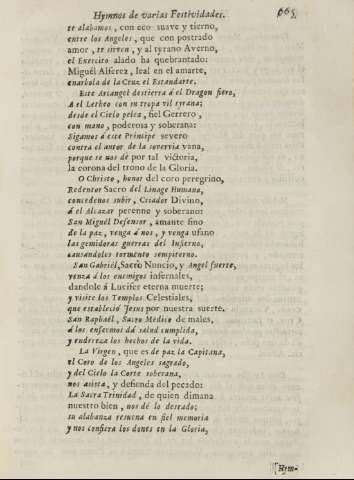 Hymnos de varias Festividades. 665
te alabamos, con eco suave y tierno,
entre los Angeles, que con postrado
amor, te sirven, y al tyrano Averno,
el Exercito alado ha quebrantado:
Miguèl Alferez, leal en el amarte,
enarbola de la Cruz el Estandarte.
Este Arcangel destierra á el Dragon fiero,
A el Letheo con su tropa vil tyrana;
desde el Cielo pelea, fiel Gerrero,
con mano, poderosa y soberana:
Sigamos á este Principe severo
contra el autor de la sovervia vana,
porque se nos dé por tal victoria,
la corona del trono de la Gloria.
O Christo, honor del coro peregrino,
Redentor Sacro del Linage Humano,
concedenos subir, Criador Divino,
á el Alcazar perenne y soberano:
San Miguèl Defensor, amante fino
de la paz, venga á nos, y venza ufano
las gemidoras guerras del Infierno,
causandoles tormento sempiterno.
San Gabriél, Sacro Nuncio, y Angel fuerte,
venza á los enemigos infernales,
dandole á Lucifer eterna muerte;
y visite los Templos Celestiales,
que estableció Jesus por nuestra suerte.
San Raphaèl, Sacro Medico de males,
á los enfermos dá salud cumplida,
y endereza los hechos de la vida.
La Virgen, que es de paz la Capitana,
el Coro de los Angeles sagrado,
y del Cielo la Corte soberana,
nos asista, y defienda del pecado:
La Sacra Trinidad, de quien dimana
nuestro bien, nos dé lo deseado;
su alabanza resuena en fiel memoria
y nos confiera los dones en la Gloria,
Hym-